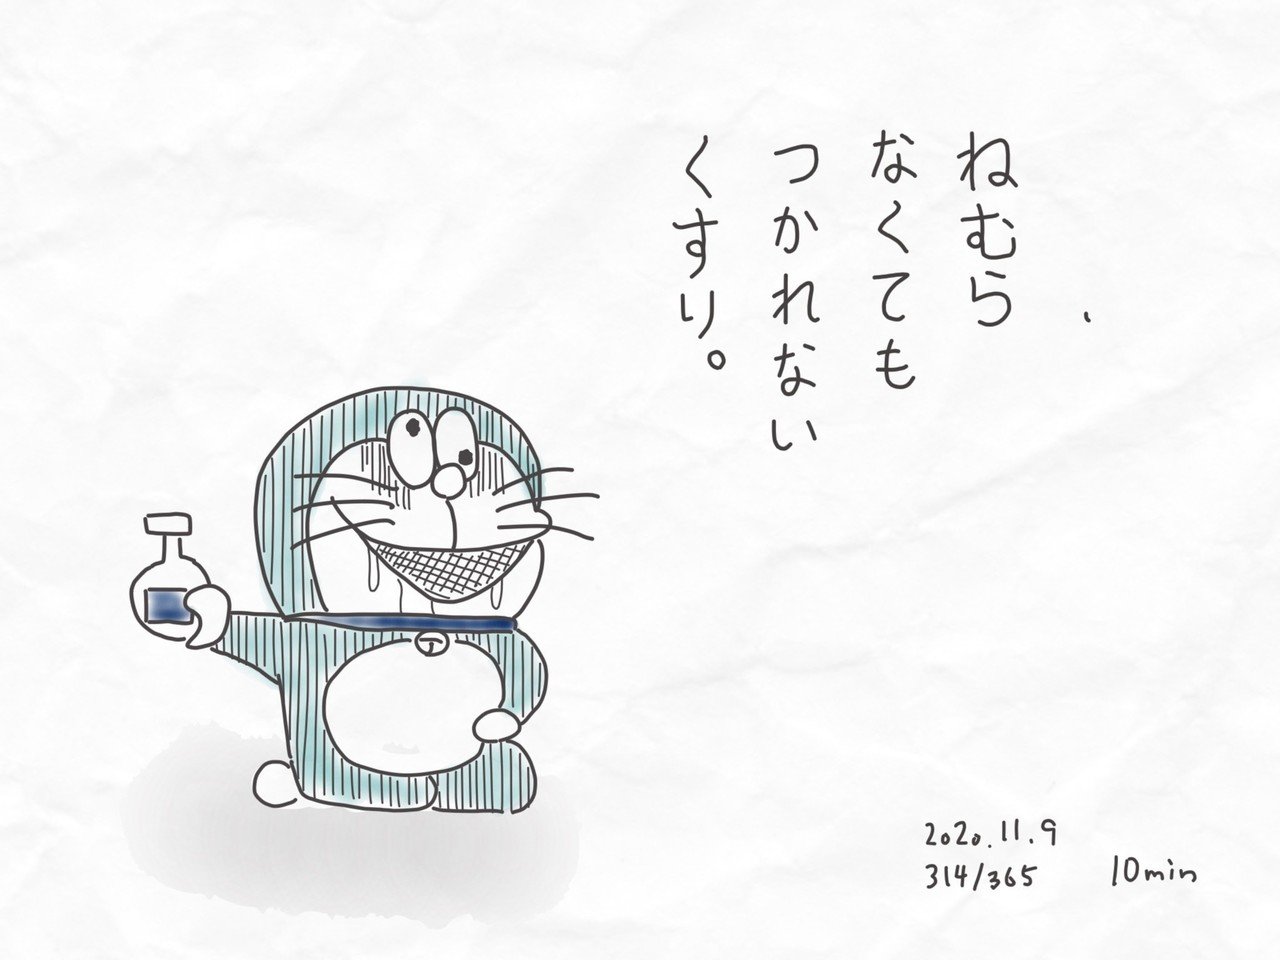 ねむら
なくても
つかれない
くすり。
2020.11.9
314/365
10min